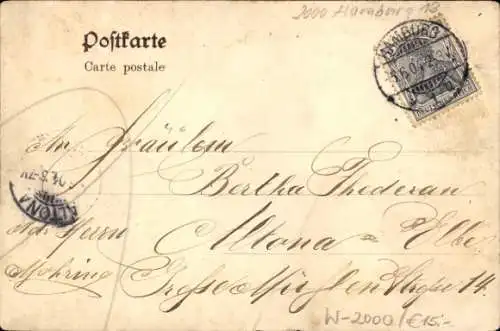 2000 Hamburg 13
Postkarte
Carte postale
HAMBURG
An Fräulein
Bertha Thederan
ALTONA
Adr. Herrn
Altona - Elbe
Möhring
Grosse
14.
W-2000/€15.-